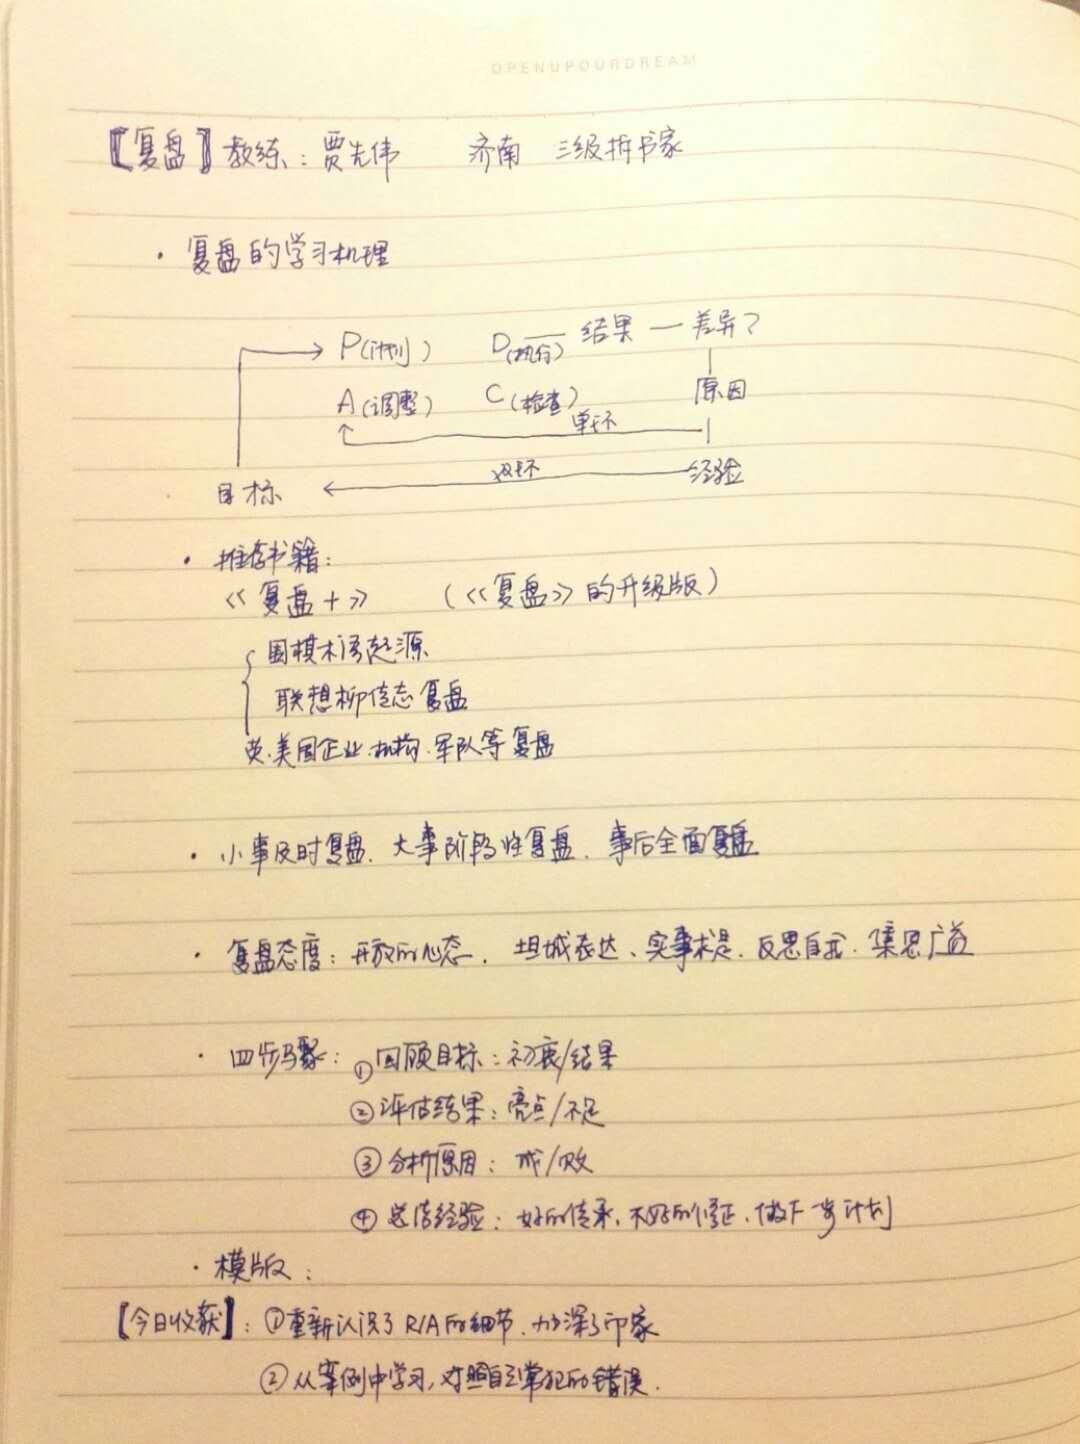 OPENUPOURDREAM
【复盘】教练：贾先伟 济南 三级拆书家
· 复盘的学习机理
P(计划) D(执行) 结果 — 差异？
A(调整) C(检查) 原因
单环
双环
目标 经验
· 推荐书籍：
《复盘+》 (《复盘》的升级版)
围棋术语起源
联想柳传志复盘
英.美国企业.机构.军队等复盘
· 小事及时复盘、大事阶段性复盘、事后全面复盘
· 复盘态度：开放的心态、坦城表达、实事求是、反思自我、集思广益
· 四步骤：①回顾目标：初衷/结果
②评估结果：亮点/不足
③分析原因：成/败
④总结经验：好的传承、不好的修正、做下一步计划
· 模版：
【今日收获】：①重新认识了RIA的细节、加深了印象
②从案例中学习,对照自己常犯的错误.